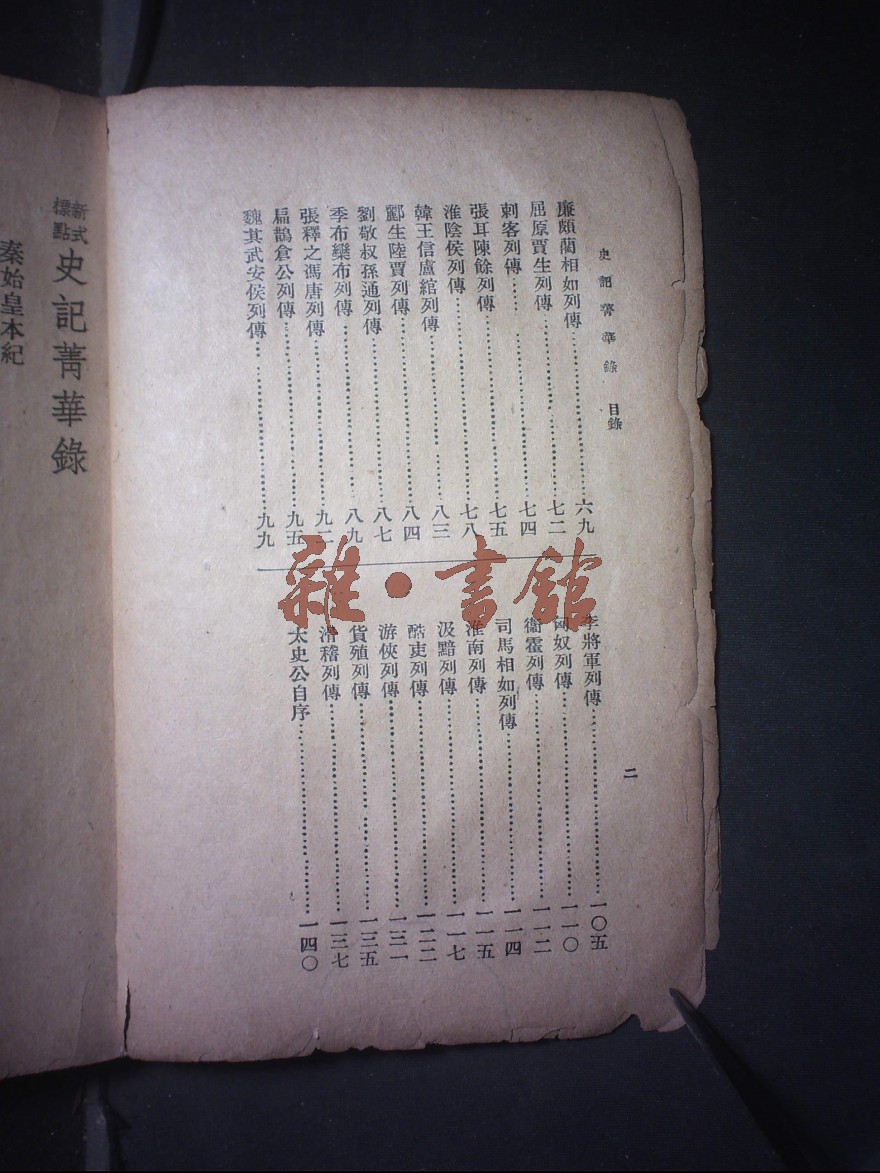 史記菁華錄 目錄
二
廉頗藺相如列傳……六九
屈原賈生列傳……七二
刺客列傳……七四
張耳陳餘列傳……七五
淮陰侯列傳……七八
韓王信盧綰列傳……八三
酈生陸賈列傳……八四
劉敬叔孫通列傳……八七
季布欒布列傳……八九
張釋之馮唐列傳……九二
扁鵲倉公列傳……九五
魏其武安侯列傳……九九
李將軍列傳……一〇五
匈奴列傳……一一〇
衞霍列傳……一一二
司馬相如列傳……一一四
淮南列傳……一一五
汲黯列傳……一一七
酷吏列傳……一二二
游俠列傳……一三一
貨殖列傳……一三五
滑稽列傳……一三七
太史公自序……一四〇
新式標點 史記菁華錄
秦始皇本紀
雜·書館